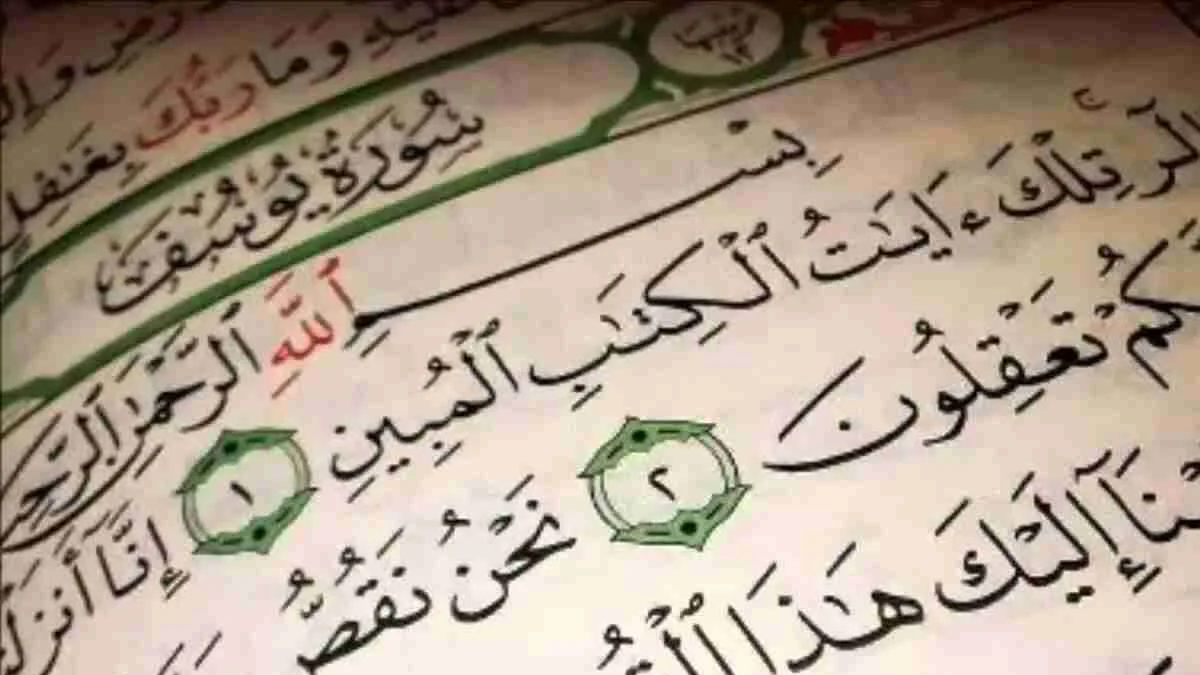 وَمَا رَبُّكَ بِغَٰفِلٍ
سُورَةُ يُوسُفَ
تَرْتِيبُهَا ١٢
بِسْمِ ٱللَّهِ ٱلرَّحْمَٰنِ ٱلرَّحِي
الٓر تِلْكَ ءَايَٰتُ ٱلْكِتَٰبِ ٱلْمُبِينِ ١ إِنَّآ أَنزَلْ
كُمْ تَعْقِلُونَ ٢ نَحْنُ نَقُصُّ
نَآ إِلَيْكَ هَٰذَا ٱلْقُ